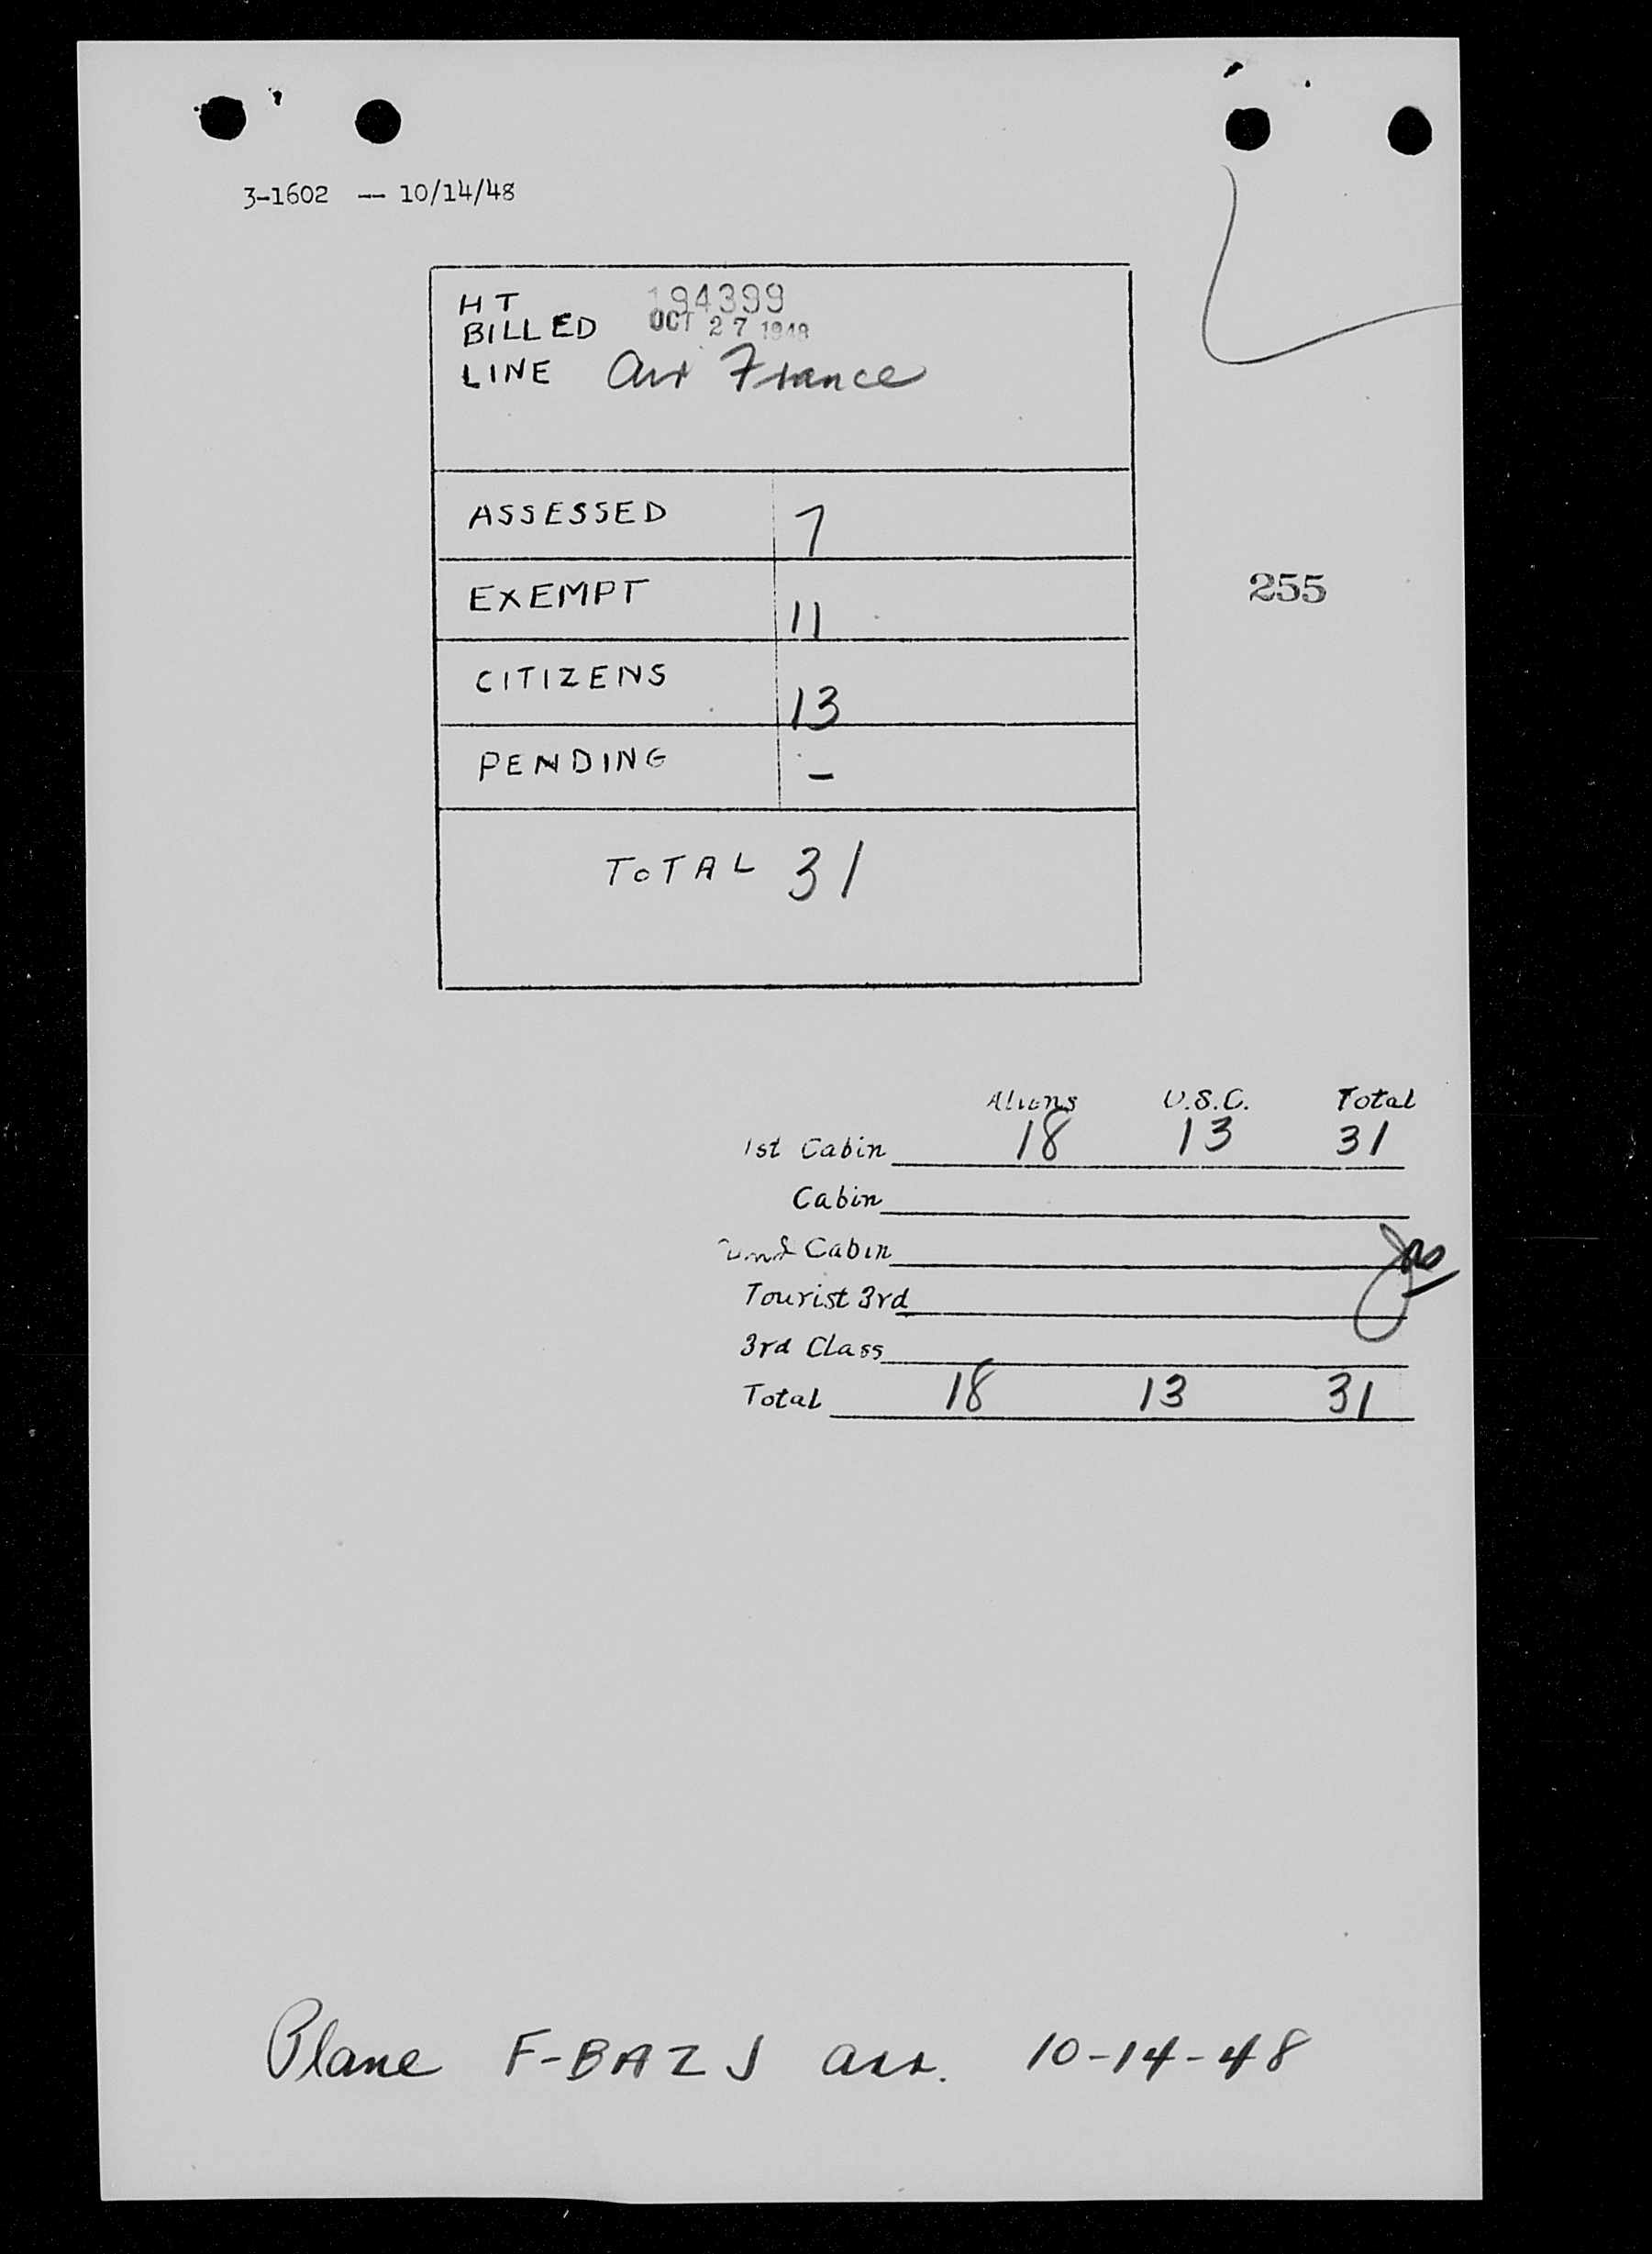 3-1602 -- 10/14/48
HT 194399
BILLED OCT 27 1948
LINE Air France
ASSESSED 7
EXEMPT 11
255
CITIZENS 13
PENDING -
TOTAL 31
Aliens U.S.C. Total
1st Cabin 18 13 31
Cabin
2nd Cabin
Tourist 3rd
3rd Class
Total 18 13 31
Plane F-BAZJ arr. 10-14-48